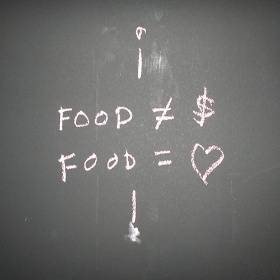 FOOD ≠ $
FOOD = ♡